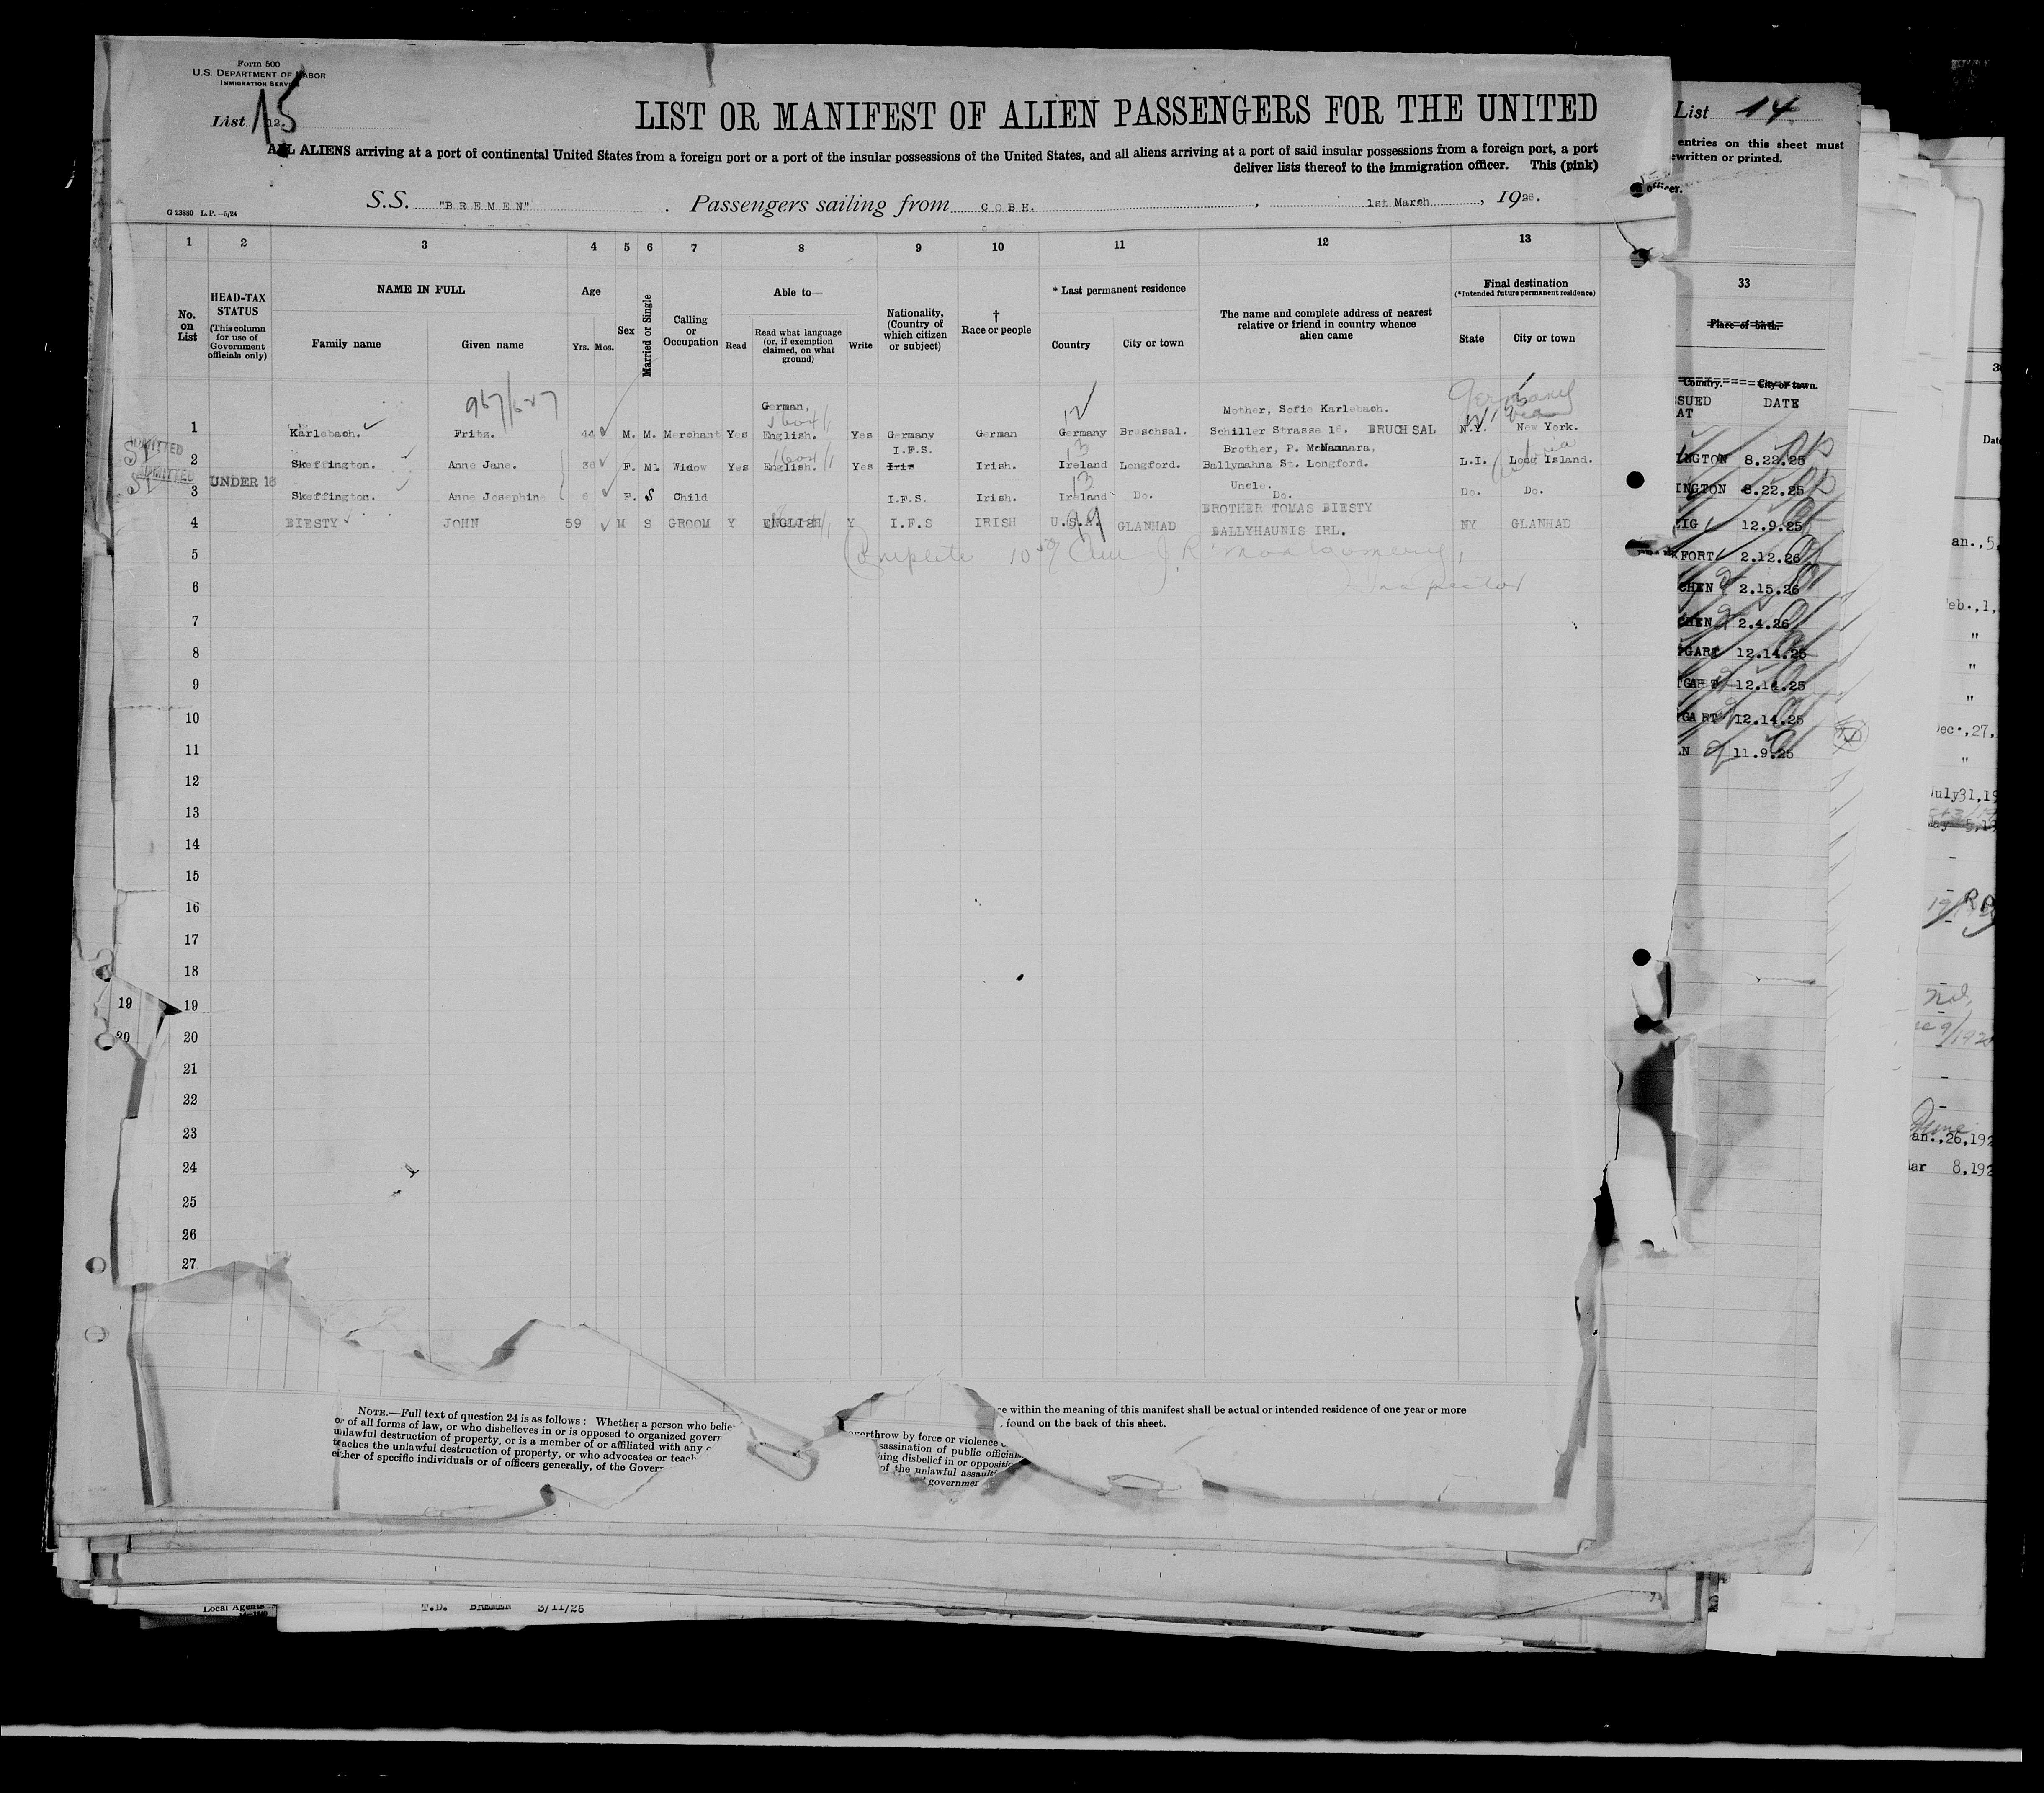 Form 500
U.S. DEPARTMENT OF LABOR
IMMIGRATION SERVICE
List 15
12.
LIST OR MANIFEST OF ALIEN PASSENGERS FOR THE UNITED
ALL ALIENS arriving at a port of continental United States from a foreign port or a port of the insular possessions of the United States, and all aliens arriving at a port of said insular possessions from a foreign port, a port
deliver lists thereof to the immigration officer. This (pink)
S.S. "BREMEN". Passengers sailing from COBH., 1st March, 1926.
G 23880 L.P.—5/24
1 2 3 4 5 6 7 8 9 10 11 12 13
No. on List
HEAD-TAX STATUS
(This column for use of Government officials only)
NAME IN FULL
Family name Given name
Age
Yrs. Mos.
Sex
Married or Single
Calling or Occupation
Able to—
Read
Read what language (or, if exemption claimed, on what ground)
Write
Nationality, (Country of which citizen or subject)
† Race or people
* Last permanent residence
Country City or town
The name and complete address of nearest relative or friend in country whence alien came
Final destination
(*Intended future permanent residence)
State City or town
967/627
German, Mother, Sofie Karlebach.
1 Karlebach. Fritz. 44 M. M. Merchant Yes English. Yes Germany German Germany Bruschsal. Schiller Strasse 16. BRUCHSAL N.Y. New York.
ADMITTED
I.F.S. Brother, P. McNamara,
2 Skeffington. Anne Jane. 36 F. Widow Yes English. Yes Iris Irish. Ireland Longford. Ballymahna St. Longford. L.I. Long Island.
ADMITTED
UNDER 16
Uncle.
3 Skeffington. Anne Josephine 6 F. S Child I.F.S. Irish. Ireland Do. Do. Do. Do.
BROTHER TOMAS BIESTY
4 BIESTY JOHN 59 M S GROOM Y ENGLISH Y I.F.S IRISH U.S.A. GLANHAD BALLYHAUNIS IRL. NY GLANHAD
Complete J. R. Montgomery,
Inspector
5
6
7
8
9
10
11
12
13
14
15
16
17
18
19 19
20 20
21
22
23
24
25
26
27
NOTE.—Full text of question 24 is as follows: Whether a person who belie
or of all forms of law, or who disbelieves in or is opposed to organized govern
unlawful destruction of property, or is a member of or affiliated with any
teaches the unlawful destruction of property, or who advocates or teach
either of specific individuals or of officers generally, of the Govern
ce within the meaning of this manifest shall be actual or intended residence of one year or more
found on the back of this sheet.
overthrow by force or violence
sassination of public officials
ning disbelief in or oppositio
of the unlawful assault
governmen
Local Agents
T.D. BREMEN 3/11/26
List 14
entries on this sheet must
ewritten or printed.
officer.
33
Place of birth.
Country. City or town.
SSUED AT DATE
INGTON 8.22.25
INGTON 8.22.25
IG 12.9.25
FORT 2.12.26
CHEN 2.15.26
CHEN 2.4.26
GART 12.14.25
GART 12.14.25
GART 12.14.25
N 11.9.25
Date
an.,5,
eb.,1,
"
"
"
Dec.,27,
"
July31,19
ay 5,19
an.,26,192
ar 8,192